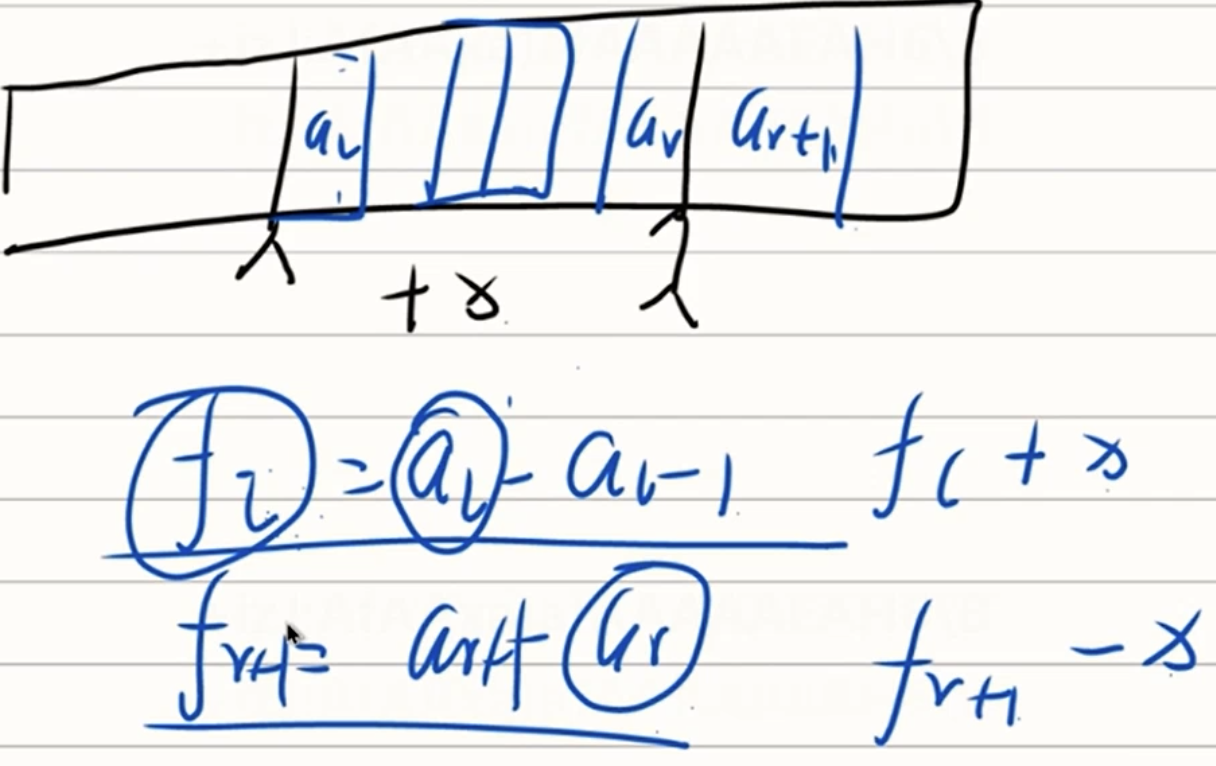 a_l a_r a_{r+1}
l + x r
f_l = a_l - a_{l-1} f_l + x
f_{r+1} = a_{r+1} - a_r f_{r+1} - x